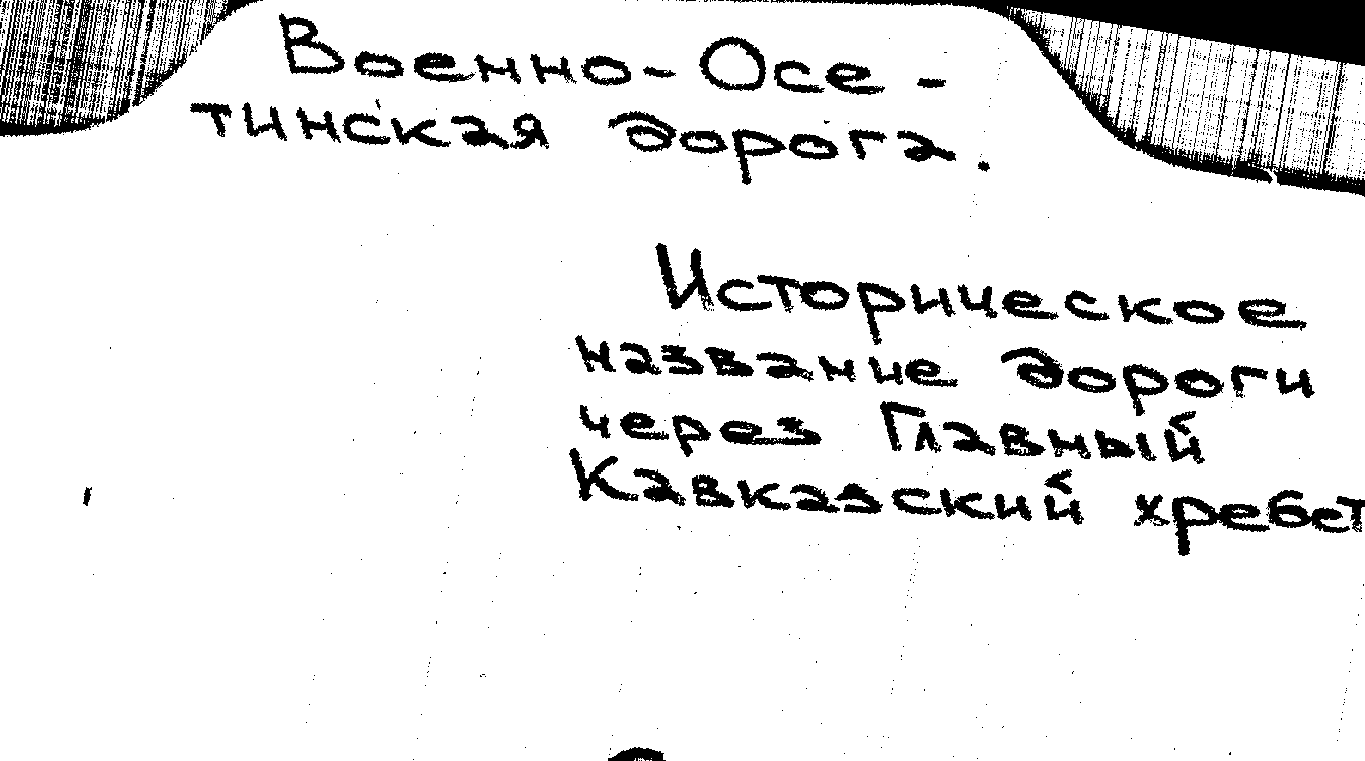 Военно-Осе-
тинская дорога.
Историческое
название дороги
через Главный
Кавказский хребет